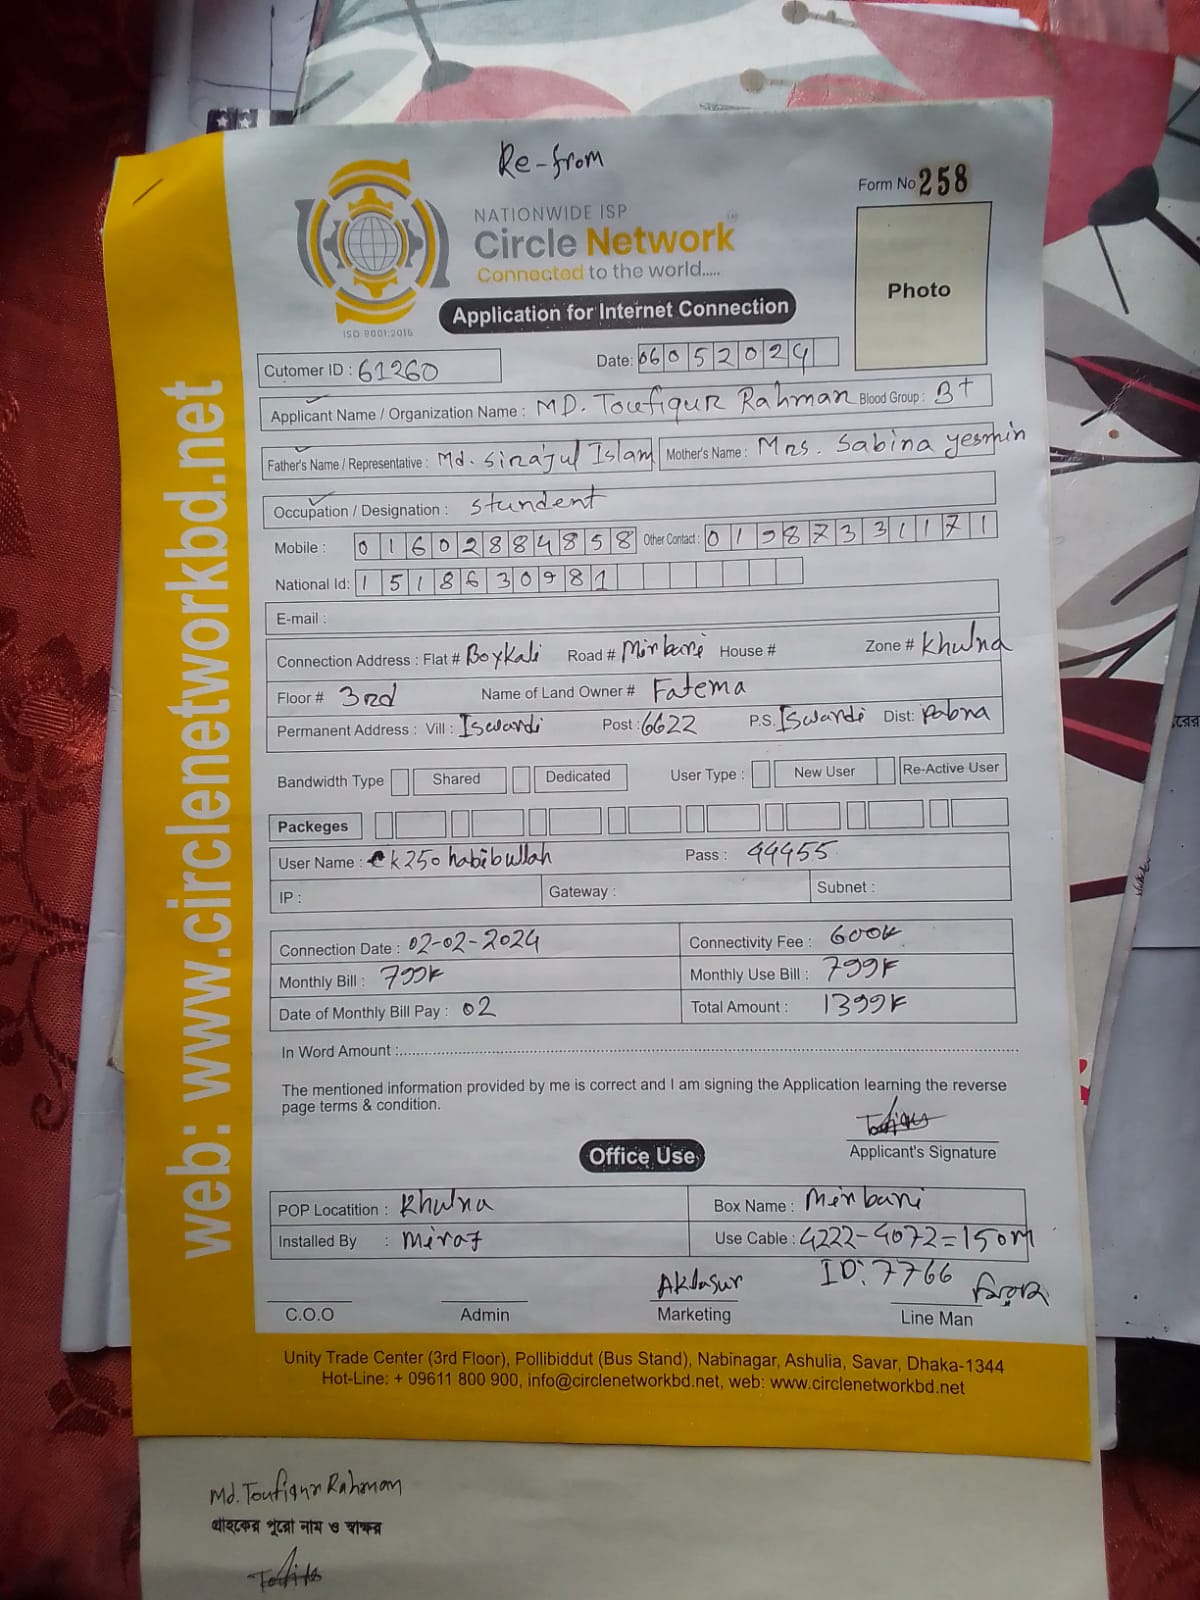 Re-from
Form No 258
NATIONWIDE ISP
Circle Network
Connected to the world.....
ISO 9001:2015
Application for Internet Connection
Photo
Cutomer ID : 61260
Date: 06052024
Applicant Name / Organization Name : MD. Toufiqur Rahman Blood Group : B+
Father's Name / Representative : Md. Sirajul Islam Mother's Name : Mrs. Sabina yesmin
Occupation / Designation : Stundent
Mobile : 01602884858 Other Contact : 01987331171
National Id: 1518630981
E-mail :
Connection Address : Flat # Boykali Road # Mirbari House # Zone # Khulna
Floor # 3rd Name of Land Owner # Fatema
Permanent Address : Vill : Iswardi Post : 6622 P.S. Iswardi Dist: Pabna
Bandwidth Type Shared Dedicated User Type : New User Re-Active User
Packeges
User Name : ck250habibullah Pass : 44455
IP : Gateway : Subnet :
Connection Date : 02-02-2024 Connectivity Fee : 600৳
Monthly Bill : 799৳ Monthly Use Bill : 799৳
Date of Monthly Bill Pay : 02 Total Amount : 1399৳
In Word Amount :
The mentioned information provided by me is correct and I am signing the Application learning the reverse
page terms & condition.
Applicant's Signature
Office Use
POP Locatition : Khulna Box Name : Mirbari
Installed By : Miraj Use Cable : 4222-4072=150m
ID: 7766
C.O.O Admin Marketing Line Man
Unity Trade Center (3rd Floor), Pollibiddut (Bus Stand), Nabinagar, Ashulia, Savar, Dhaka-1344
Hot-Line: + 09611 800 900, info@circlenetworkbd.net, web: www.circlenetworkbd.net
web: www.circlenetworkbd.net
Md. Toufiqur Rahman
গ্রাহকের পুরো নাম ও স্বাক্ষর